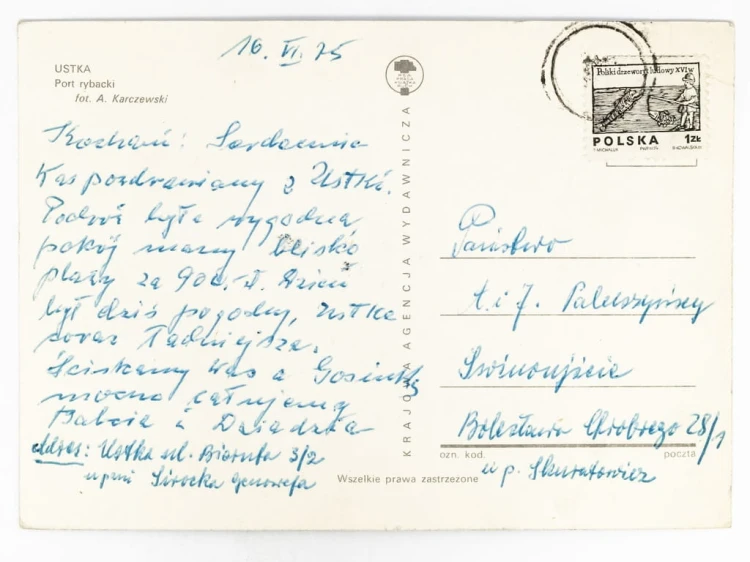 16. VI. 75
USTKA
Port rybacki
fot. A. Karczewski
Kochani! Serdecznie
Was pozdrawiamy z Ustki.
Podróż była wygodna
pokój mamy blisko
plaży za 900,- zł. Dzień
był dziś pogodny, Ustka
coraz ładniejsza.
Ściskamy Was a Gosieńkę
mocno całujemy
Babcia i Dziadzia
adres: Ustka ul. Bieruta 3/2
u pani Sirocka Genowefa
KRAJOWA AGENCJA WYDAWNICZA
Wszelkie prawa zastrzeżone
Polski drzeworyt ludowy XVI w
POLSKA 1ZŁ
Państwo
Świnoujście
Bolesława Chrobrego 28/1
ozn. kod. poczta
u p. Skuratowicz